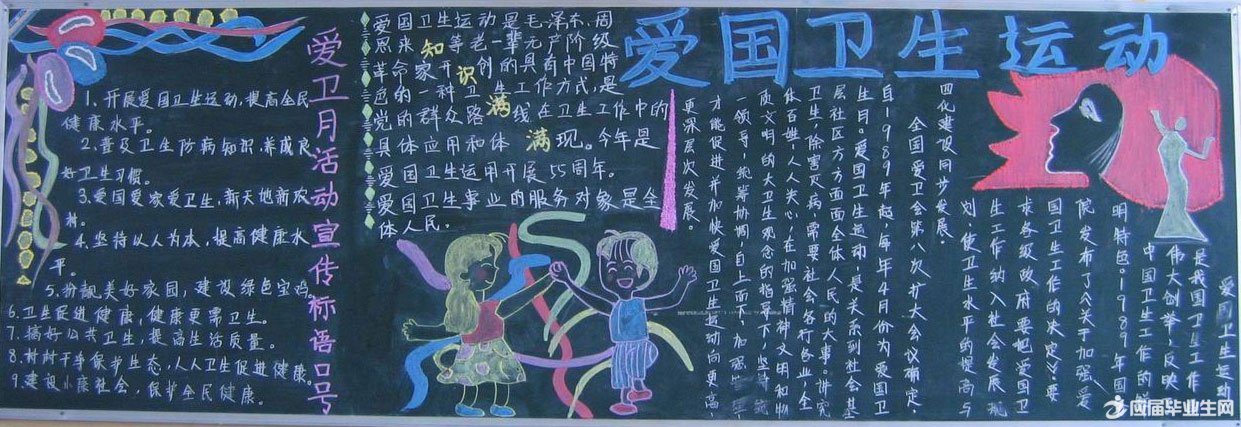 爱国卫生运动
爱卫月活动宣传标语口号
1、开展爱国卫生运动,提高全民
健康水平。
2、普及卫生防病知识,养成良
好卫生习惯。
3、爱国爱家爱卫生,新天地新农
村。
4、坚持以人为本,提高健康水
平。
5、扮靓美好家园,建设绿色宝鸡。
6、卫生促进健康,健康更需卫生。
7、搞好公共卫生,提高生活质量。
8、村村干净保护生态,人人卫生促进健康。
9、建设小康社会,保护全民健康。
爱国卫生运动是毛泽东、周
恩来等老一辈无产阶级
革命家开创的具有中国特
色的一种卫生工作方式,是
党的群众路线在卫生工作中的
具体应用和体现。今年是
爱国卫生运用开展55周年。
爱国卫生事业的服务对象是全
体人民。
知识满满
爱国卫生运动
是我国卫生工作
伟大创举,反映
中国卫生工作的鲜
明特色。1989年国
院发布了《关于加强爱
国卫生工作的决定》,要
求各级政府要把爱国卫
生工作纳入社会发展规
划,使卫生水平的提高与
四化建设同步发展。
全国爱卫会第八次扩大会议确定,
自1989年起,每年4月份为爱国卫
生月。爱国卫生运动,是关系到社会基
层社区方方面面全体人民的大事。讲究
卫生,除害灭病,需要社会各行各业,全
体百姓,人人关心,在加强精神文明和物
质文明的大卫生观念的指导下,坚持统
一领导,统筹协调,自上而下,加强
才能促进并加快爱国卫生运动向更高,
更深层次发展。
应届毕业生网